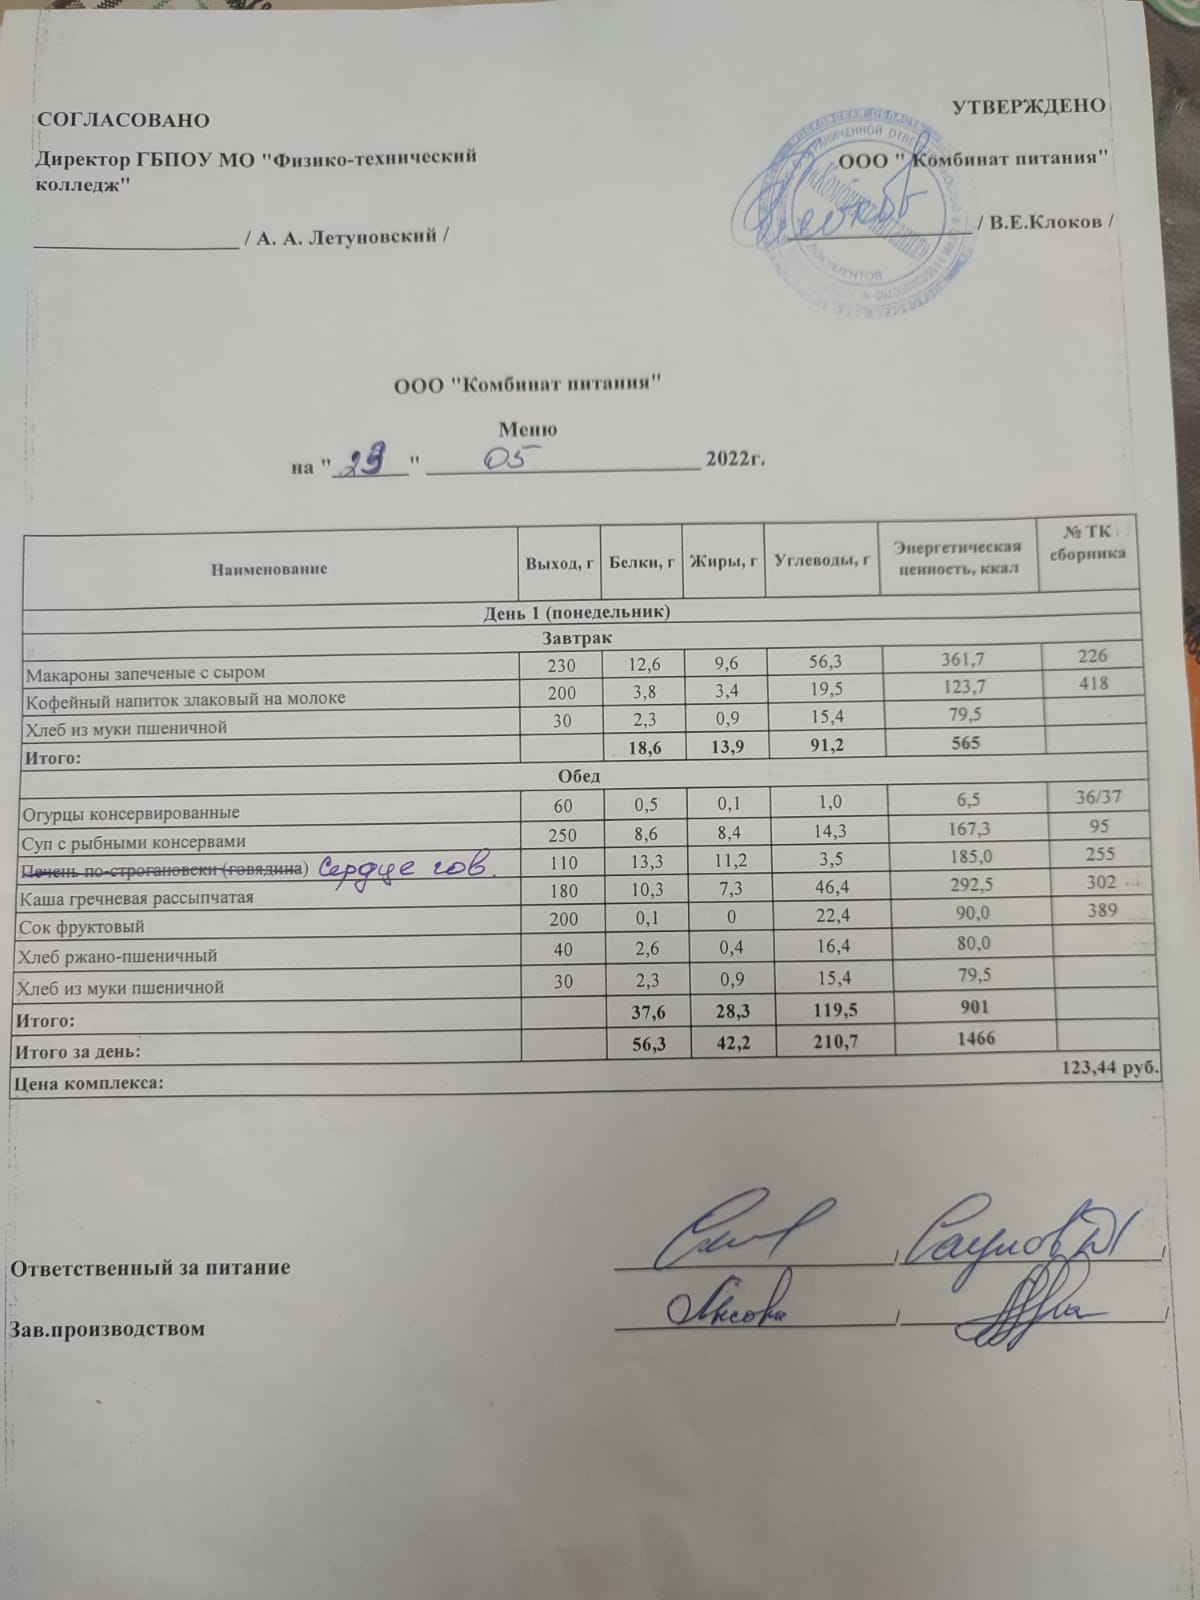 СОГЛАСОВАНО
УТВЕРЖДЕНО
Директор ГБПОУ МО "Физико-технический
колледж"
ООО " Комбинат питания"
/ А. А. Летуновский /
/ В.Е.Клоков /
ООО "Комбинат питания"
Меню
на "29" 05 2022г.
Наименование Выход, г Белки, г Жиры, г Углеводы, г Энергетическая ценность, ккал № ТК сборника
День 1 (понедельник)
Завтрак
Макароны запеченые с сыром 230 12,6 9,6 56,3 361,7 226
Кофейный напиток злаковый на молоке 200 3,8 3,4 19,5 123,7 418
Хлеб из муки пшеничной 30 2,3 0,9 15,4 79,5
Итого: 18,6 13,9 91,2 565
Обед
Огурцы консервированные 60 0,5 0,1 1,0 6,5 36/37
Суп с рыбными консервами 250 8,6 8,4 14,3 167,3 95
Печень по-строгановски (говядина) Сердце гов. 110 13,3 11,2 3,5 185,0 255
Каша гречневая рассыпчатая 180 10,3 7,3 46,4 292,5 302
Сок фруктовый 200 0,1 0 22,4 90,0 389
Хлеб ржано-пшеничный 40 2,6 0,4 16,4 80,0
Хлеб из муки пшеничной 30 2,3 0,9 15,4 79,5
Итого: 37,6 28,3 119,5 901
Итого за день: 56,3 42,2 210,7 1466
Цена комплекса: 123,44 руб.
Ответственный за питание
Зав.производством